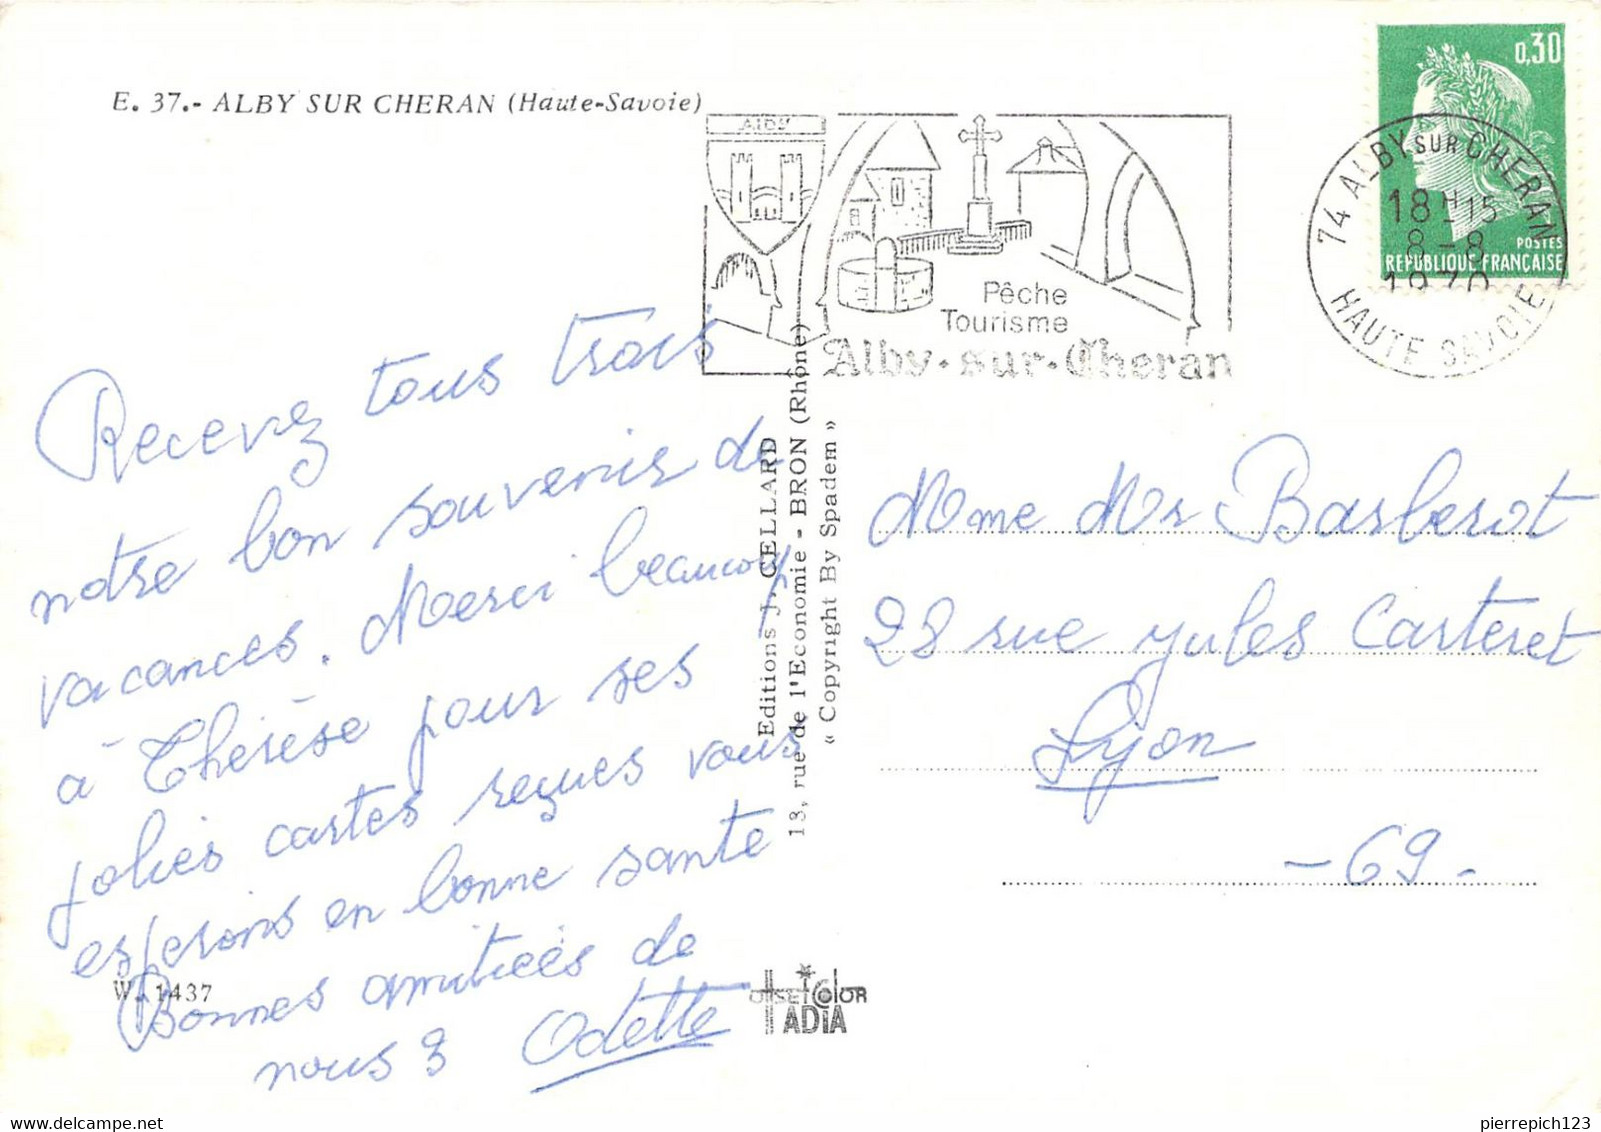 E. 37.- ALBY SUR CHERAN (Haute-Savoie)
ALBY
Pêche
Tourisme
Alby-sur-Cheran
0,30
POSTES
REPUBLIQUE FRANÇAISE
74 ALBY SUR CHERAN
18H15
8-8
1970
HAUTE SAVOIE
Recevez tous trois
notre bon souvenir de
vacances. Merci beaucoup
à Thérèse pour ses
jolies cartes reçues vous
esperons en bonne santé
Bonnes amitiées de
nous 3 Odette
W. 1437
Editions J. CELLARD
13, rue de l'Economie - BRON (Rhône)
« Copyright By Spadem »
OffSET COlOR
HADIA
Mme Mr Barberot
28 rue Jules Carteret
Lyon
- 69 -
pierrepich123